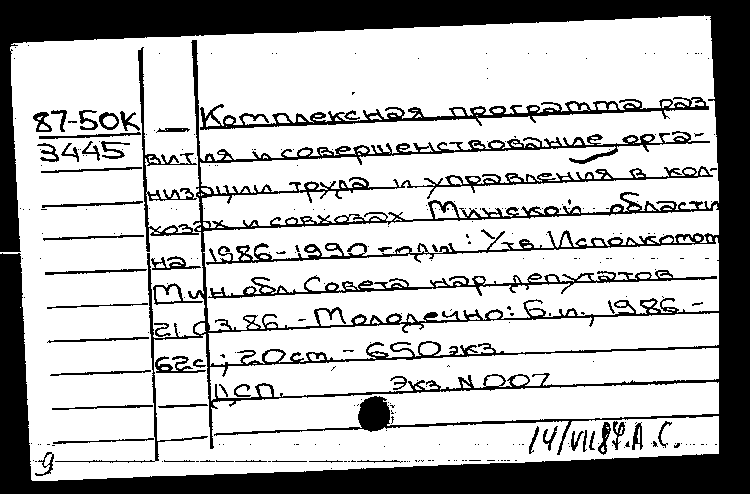 87-50К — Комплексная программа раз-
3445 вития и совершенствование орга-
низации труда и управления в кол-
хозах и совхозах Минской области
на 1986-1990 годы: Утв. Исполкомом
Мин. обл. Совета нар. депутатов
21.03.86. - Молодечно: Б.и., 1986. -
62с.; 20 ст. - 650 экз.
ДСП. Экз. N 007
14/VII 87. А. С.
9